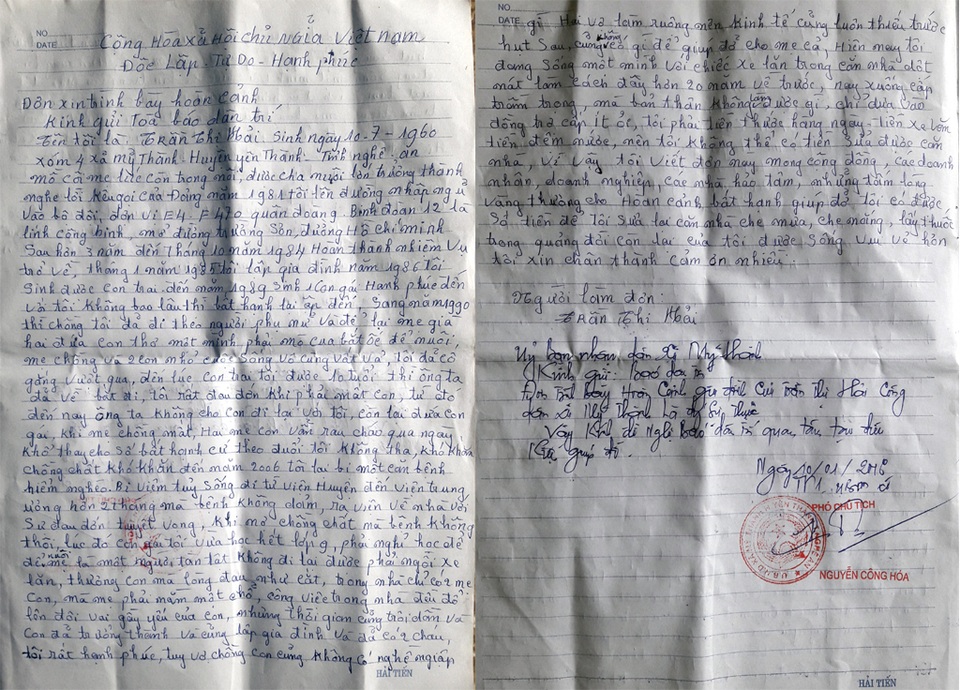 NO
DATE
Cộng Hòa Xã Hội Chủ Nghĩa Việt Nam
Độc Lập - Tự Do - Hạnh phúc
Đơn xin trình bày hoàn cảnh
Kính gửi Toà báo dân trí
Tên tôi là Trần Thị Hải Sinh ngày 10-7-1960
xóm 4 xã mỹ Thành Huyện yên Thành Tỉnh nghệ an
mồ cả mẹ lúc còn trong nôi, được cha nuôi lớn trưởng thành
nghe lời kêu gọi của Đảng năm 1981 tôi lên đường nhập ngũ
vào bộ đội, đơn vị E4. F470 quân đoàng. Binh đoàn 12 là
lính công binh, mở đường trường Sơn, đường Hồ chí minh
Sau hơn 3 năm đến Tháng 10 năm 1984 Hoàn thành nhiệm vụ
trở về, Tháng 1 năm 1985 tôi lập gia đình năm 1986 tôi
Sinh được con trai đến năm 1989 Sinh 1 con gái Hạnh phúc đến
với tôi không bao lâu thì bất hạnh lại ập đến, Sang năm 1990
thì chồng tôi đã đi theo người phụ nữ và để lại mẹ già
hai đứa con thơ một mình phải mò cua bắt ốc để nuôi,
mẹ chồng và 2 con nhỏ cuộc Sống vô cùng vất vả, tôi đã cố
gắng vượt qua, đến lúc con trai tôi được 10 tuổi thì ông ta
đã về bắt đi, tôi rất đau đớn khi phải mất con, từ đó
đến nay ông ta không cho con đi lại với tôi, còn lại đứa con
gái, khi mẹ chồng mất, Hai mẹ con vẫn rau cháo qua ngày
khổ thay cho số bất hạnh cứ theo đuổi tôi không tha, khó khăn
chồng chất khó khăn đến năm 2006 tôi lại bị một căn bệnh
hiểm nghèo. Bị viêm tuỷ Sống đi từ viện Huyện đến viện trung
ương hơn 2 tháng mà bệnh không đảm, ra viện về nhà với
Sự đau đớn tuyệt vọng, khi nợ chồng chất mà bệnh không
thôi, lúc đó con gái tôi vừa học hết lớp 9, phải nghỉ học để
để nuôi mẹ là một người tàn tật không đi lại được phải ngồi xe
lăn, thương con mà lòng đau như cắt, trong nhà chỉ có 2 mẹ
con, mà mẹ phải nằm một chỗ, công việc trong nhà đều đổ
lên đôi vai gầy yếu của con, những thời gian cũng trôi dần và
con đã trưởng thành và cũng lập gia đình và đã có 2 cháu,
tôi rất hạnh phúc, tuy vợ chồng con cũng không có nghề nghiệp
HẢI TIẾN
NO
DATE
gì Hai vợ làm ruộng nên kinh tế cũng luôn thiếu trước
hụt Sau, cũng không có gì để giúp đỡ cho mẹ cả, Hiện nay tôi
đang Sống một mình với chiếc xe lăn trong căn nhà dột
nát làm cách đây hơn 20 năm về trước, nay xuống cấp
trầm trọng, mà bản thân không làm được gì, chỉ dựa vào
đồng trợ cấp ít ỏi, tôi phải tiền thuốc hàng ngày tiền xe lăn
tiền điện nước, nên tôi không thể có tiền Sửa được căn
nhà, Vì vậy tôi viết đơn này mong cộng đồng, các doanh
nhân, doanh nghiệp, các nhà hảo tâm, những tấm lòng
vàng thương cho Hoàn cảnh, bất hạnh giúp đỡ tôi có được
Số tiền để tôi Sửa lại căn nhà che mưa, che nắng, lấy thuốc
trong quảng đời còn lại của tôi được Sống vui vẻ hơn
tôi xin chân thành cảm ơn nhiều.
Người làm đơn
Trần Thị Hải
Uỷ ban nhân dân xã Mỹ Thành
Kính gửi: Báo dân trí
Đơn trình bày Hoàn Cảnh gia đình Của trần thị Hải Công
dân xã Mỹ Thành Là đúng Sự thực
Vậy Kính đề Nghị báo dân trí quan tâm tạo điều
Kiện giúp đỡ.
Ngày 10/01/2018
TM. UBND xã
PHÓ CHỦ TỊCH
NGUYỄN CÔNG HÓA
HẢI TIẾN